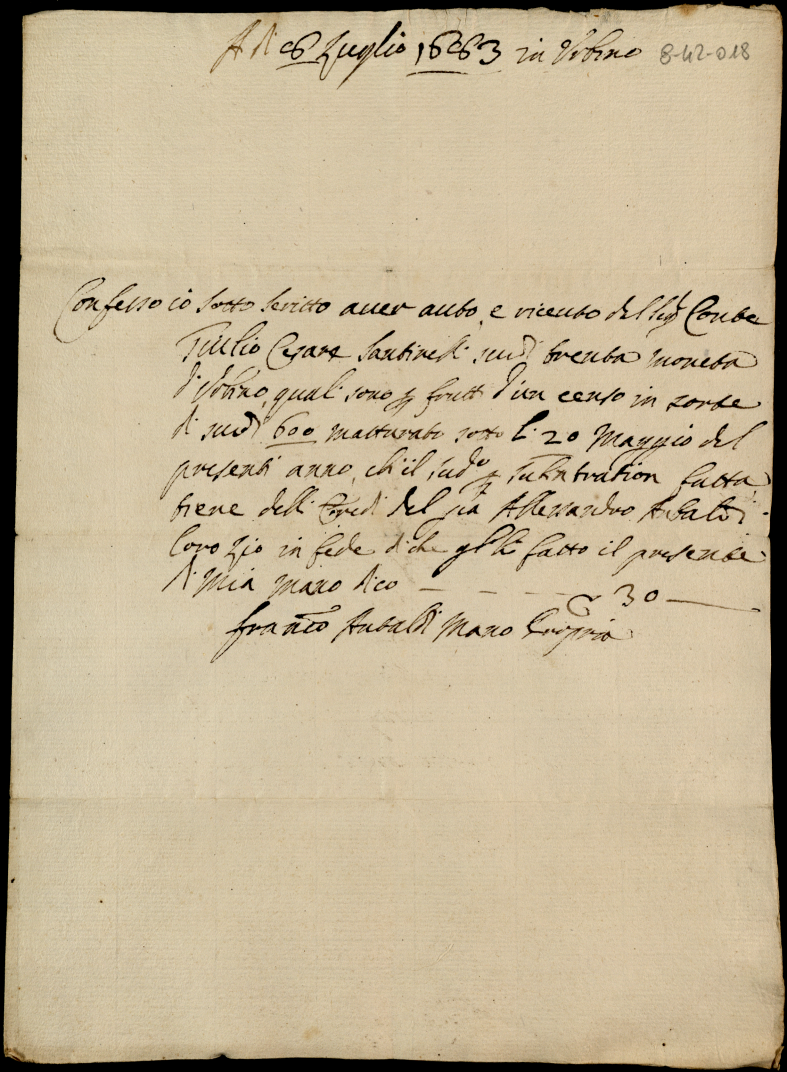 A dì 6 Luglio 1663 in Vrbino 8-42-018
Confesso io sotto scritto auer auto, e riceuto del Sig.r Conte
Giulio Cesare Santinelli scudi trenta moneta
d'Vrbino, quali sono p frutti d'un censo in sorte
di scudi 600 matturato sotto li 20 Maggio del
presente anno, ch'il sud.o p subintration fatta
tiene delli Eredi del già Allessandro Aubaldi
loro Zio in fede di che gl'hò fatto il presente
di mia mano dico — — — — 30 —
Fran.co Aubaldi Mano Propria